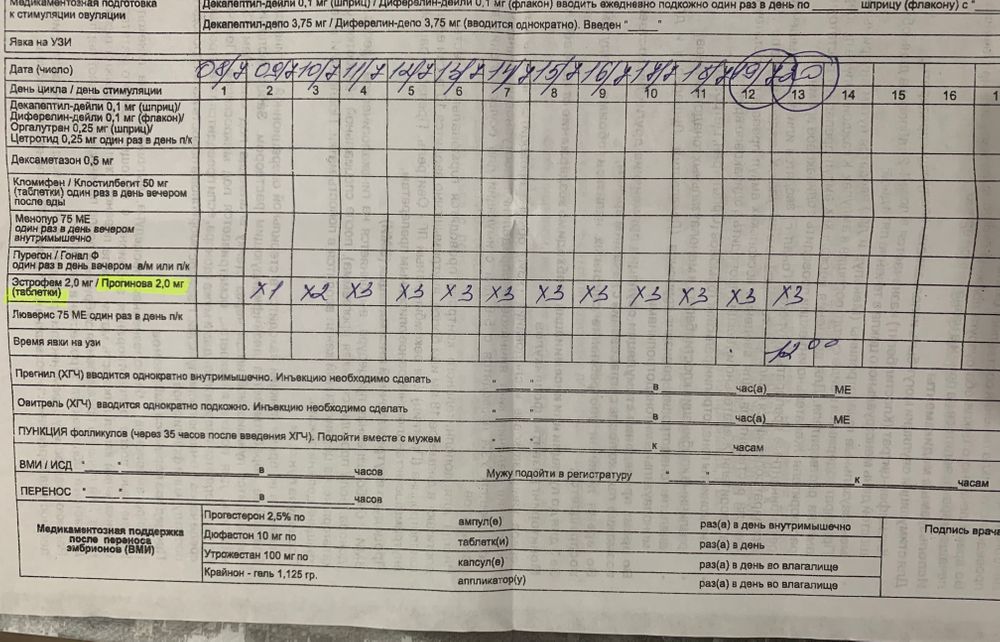 Медикаментозная подготовка
к стимуляции овуляции
Декапептил-дейли 0,1 мг (шприц) / Диферелин-дейли 0,1 мг (флакон) вводить ежедневно подкожно один раз в день по ______ шприцу (флакону) с "
Декапептил-депо 3,75 мг / Диферелин-депо 3,75 мг (вводится однократно). Введен "____"
Явка на УЗИ
Дата (число) 08/7 09/7 10/7 11/7 12/7 13/7 14/7 15/7 16/7 17/7 18/7 19/7 20
День цикла / день стимуляции 1 2 3 4 5 6 7 8 9 10 11 12 13 14 15 16 1
Декапептил-дейли 0,1 мг (шприц)/
Диферелин-дейли 0,1 мг (флакон)/
Оргалутран 0,25 мг (шприц)/
Цетротид 0,25 мг один раз в день п/к
Дексаметазон 0,5 мг
Кломифен / Клостилбегит 50 мг
(таблетки) один раз в день вечером
после еды
Менопур 75 МЕ
один раз в день вечером
внутримышечно
Пурегон / Гонал Ф
один раз в день вечером в/м или п/к
Эстрофем 2,0 мг / Прогинова 2,0 мг
(таблетки) х1 х2 х3 х3 х3 х3 х3 х3 х3 х3 х3 х3
Люверис 75 МЕ один раз в день п/к
Время явки на узи 12 00
Прегнил (ХГЧ) вводится однократно внутримышечно. Инъекцию необходимо сделать "____" ______ в ______ час(а) ______ МЕ
Овитрель (ХГЧ) вводится однократно подкожно. Инъекцию необходимо сделать "____" ______ в ______ час(а) ______ МЕ
ПУНКЦИЯ фолликулов (через 35 часов после введения ХГЧ). Подойти вместе с мужем "____" ______ к ______ часам
ВМИ / ИСД "____" ______ в ______ часов Мужу подойти в регистратуру "____" ______ к ______ часам
ПЕРЕНОС "____" ______ в ______ часов
Медикаментозная поддержка
после переноса
эмбрионов (ВМИ)
Прогестерон 2,5% по ампул(е) раз(а) в день внутримышечно
Дюфастон 10 мг по таблетк(и) раз(а) в день
Утрожестан 100 мг по капсул(е) раз(а) в день во влагалище
Крайнон - гель 1,125 гр. аппликатор(у) раз(а) в день во влагалище
Подпись врача